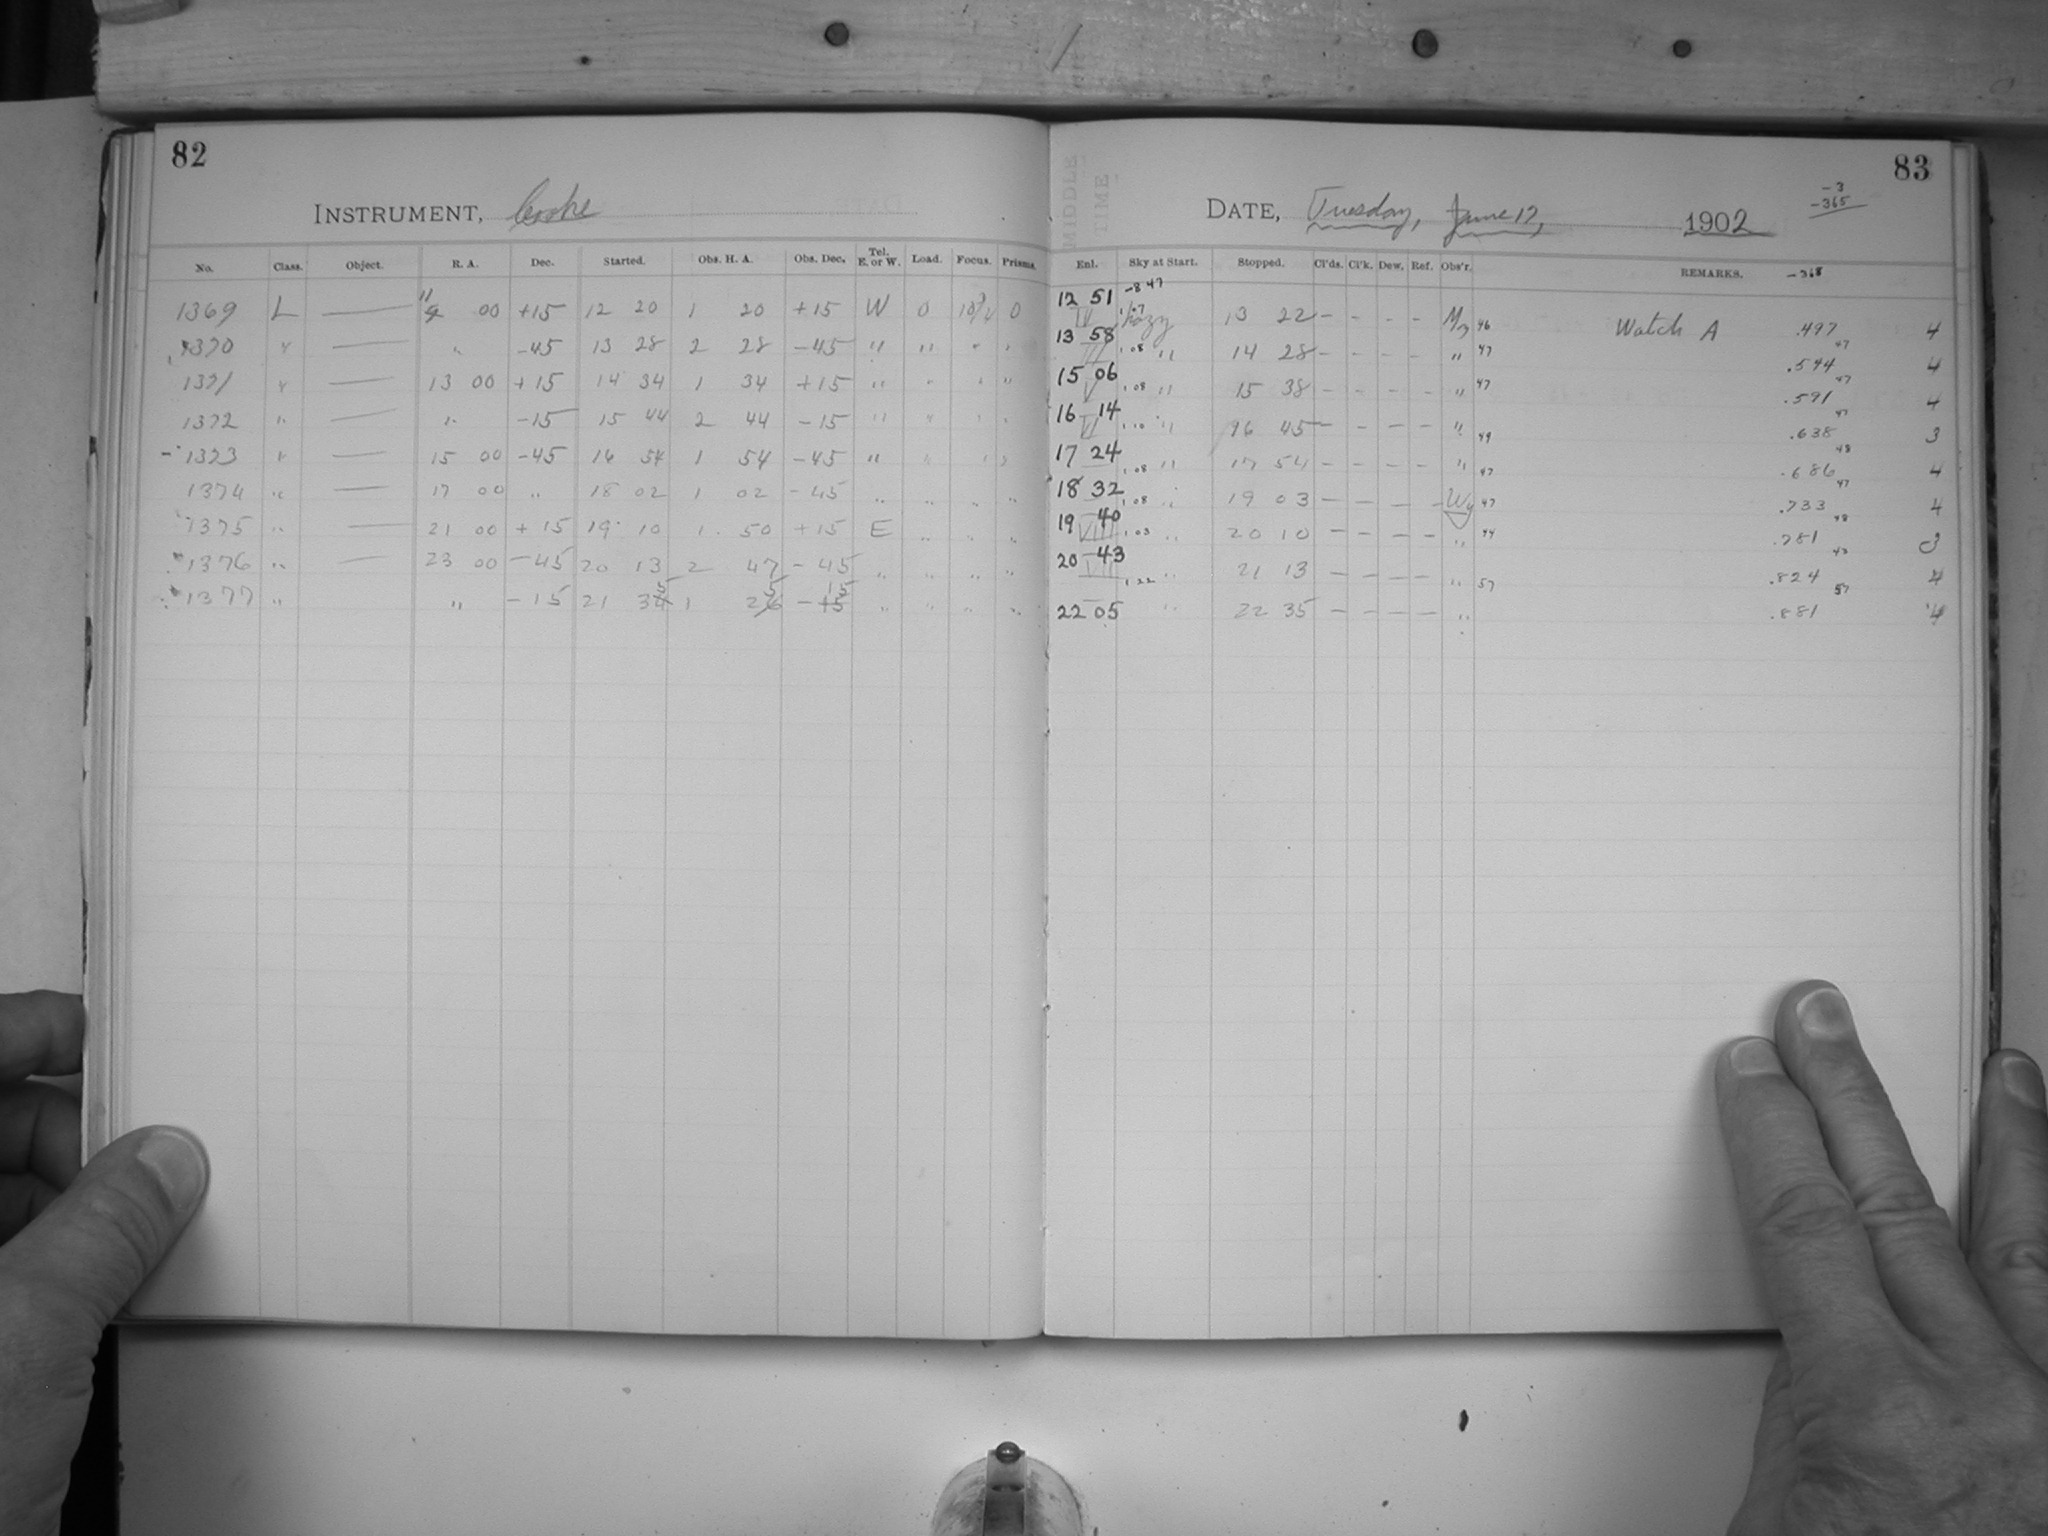 82
INSTRUMENT, Cooke
No. Class. Object. R. A. Dec. Started. Obs. H. A. Obs. Dec. Tel. E. or W. Load. Focus. Prisms.
1369 L — 11 00 +15 12 20 1 20 +15 W 0 0
1370 " — " -45 13 28 2 28 -45 " " " "
1371 " — 13 00 +15 14 34 1 34 +15 " " " "
1372 " — " -15 15 44 2 44 -15 " " " "
1373 " — 15 00 -45 16 54 1 54 -45 " " " "
1374 " — 17 00 " 18 02 1 02 -45 " " " "
1375 " — 21 00 +15 19 10 1 50 +15 E " " "
1376 " — 23 00 -45 20 13 2 47 -45 " " " "
1377 " " -15 21 35 1 25 -15 " " " "
83
MIDDLE TIME
DATE, Tuesday, June 17, 1902
-3
-365
Enl. Sky at Start. Stopped. Cl'ds. Cl'k. Dew. Ref. Obs'r. REMARKS. -368
12 51 -8 47
IV 1.07 hazy 13 22 - - - - My 46 Watch A .497 47 4
13 58
III 1.08 " 14 28 - - - - " 47 .544 47 4
15 06
V 1.08 " 15 38 - - - - " 47 .591 47 4
16 14
VI 1.10 " 16 45 - - - - " 49 .638 48 3
17 24
1.08 " 17 54 - - - - " 47 .686 47 4
18 32
1.08 " 19 03 - - - - Wy 47 .733 48 4
19 40
VIII 1.03 " 20 10 - - - - " 44 .781 43 3
20 43
VII 1.22 " 21 13 " 57 .824 57 4
22 05 " 22 35 - - - - " .881 4